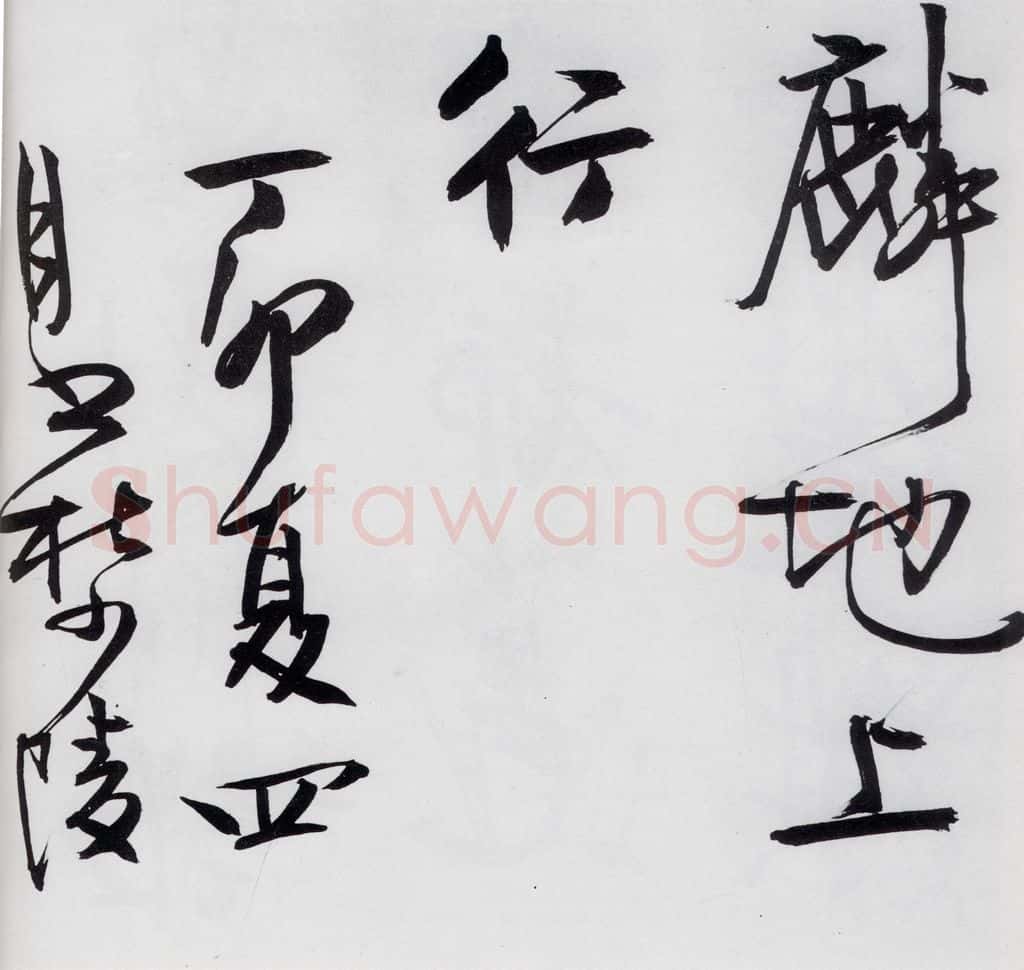 麟地上
行
丁卯夏四
月书杜少陵
Shufawang.CN